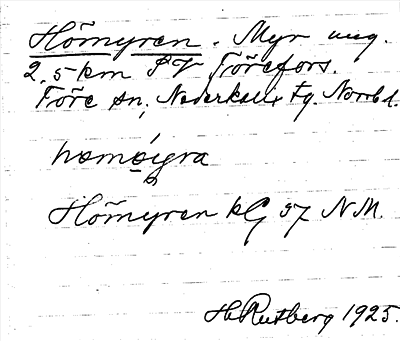 Hömyren. Myr ung.
2,5 km SV Törefors.
Töre sn, Nederkalix tg. Norrb.l.
Hömyren kG 57 NM.
H. Rutberg 1925.